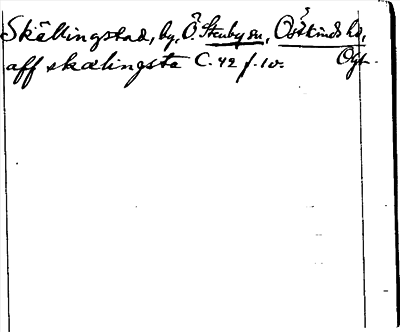 Skällingstad, by, Ö. Stenby sn, Östkinds hd,
aff skælingsta C. 42 f. 10. Ögl.